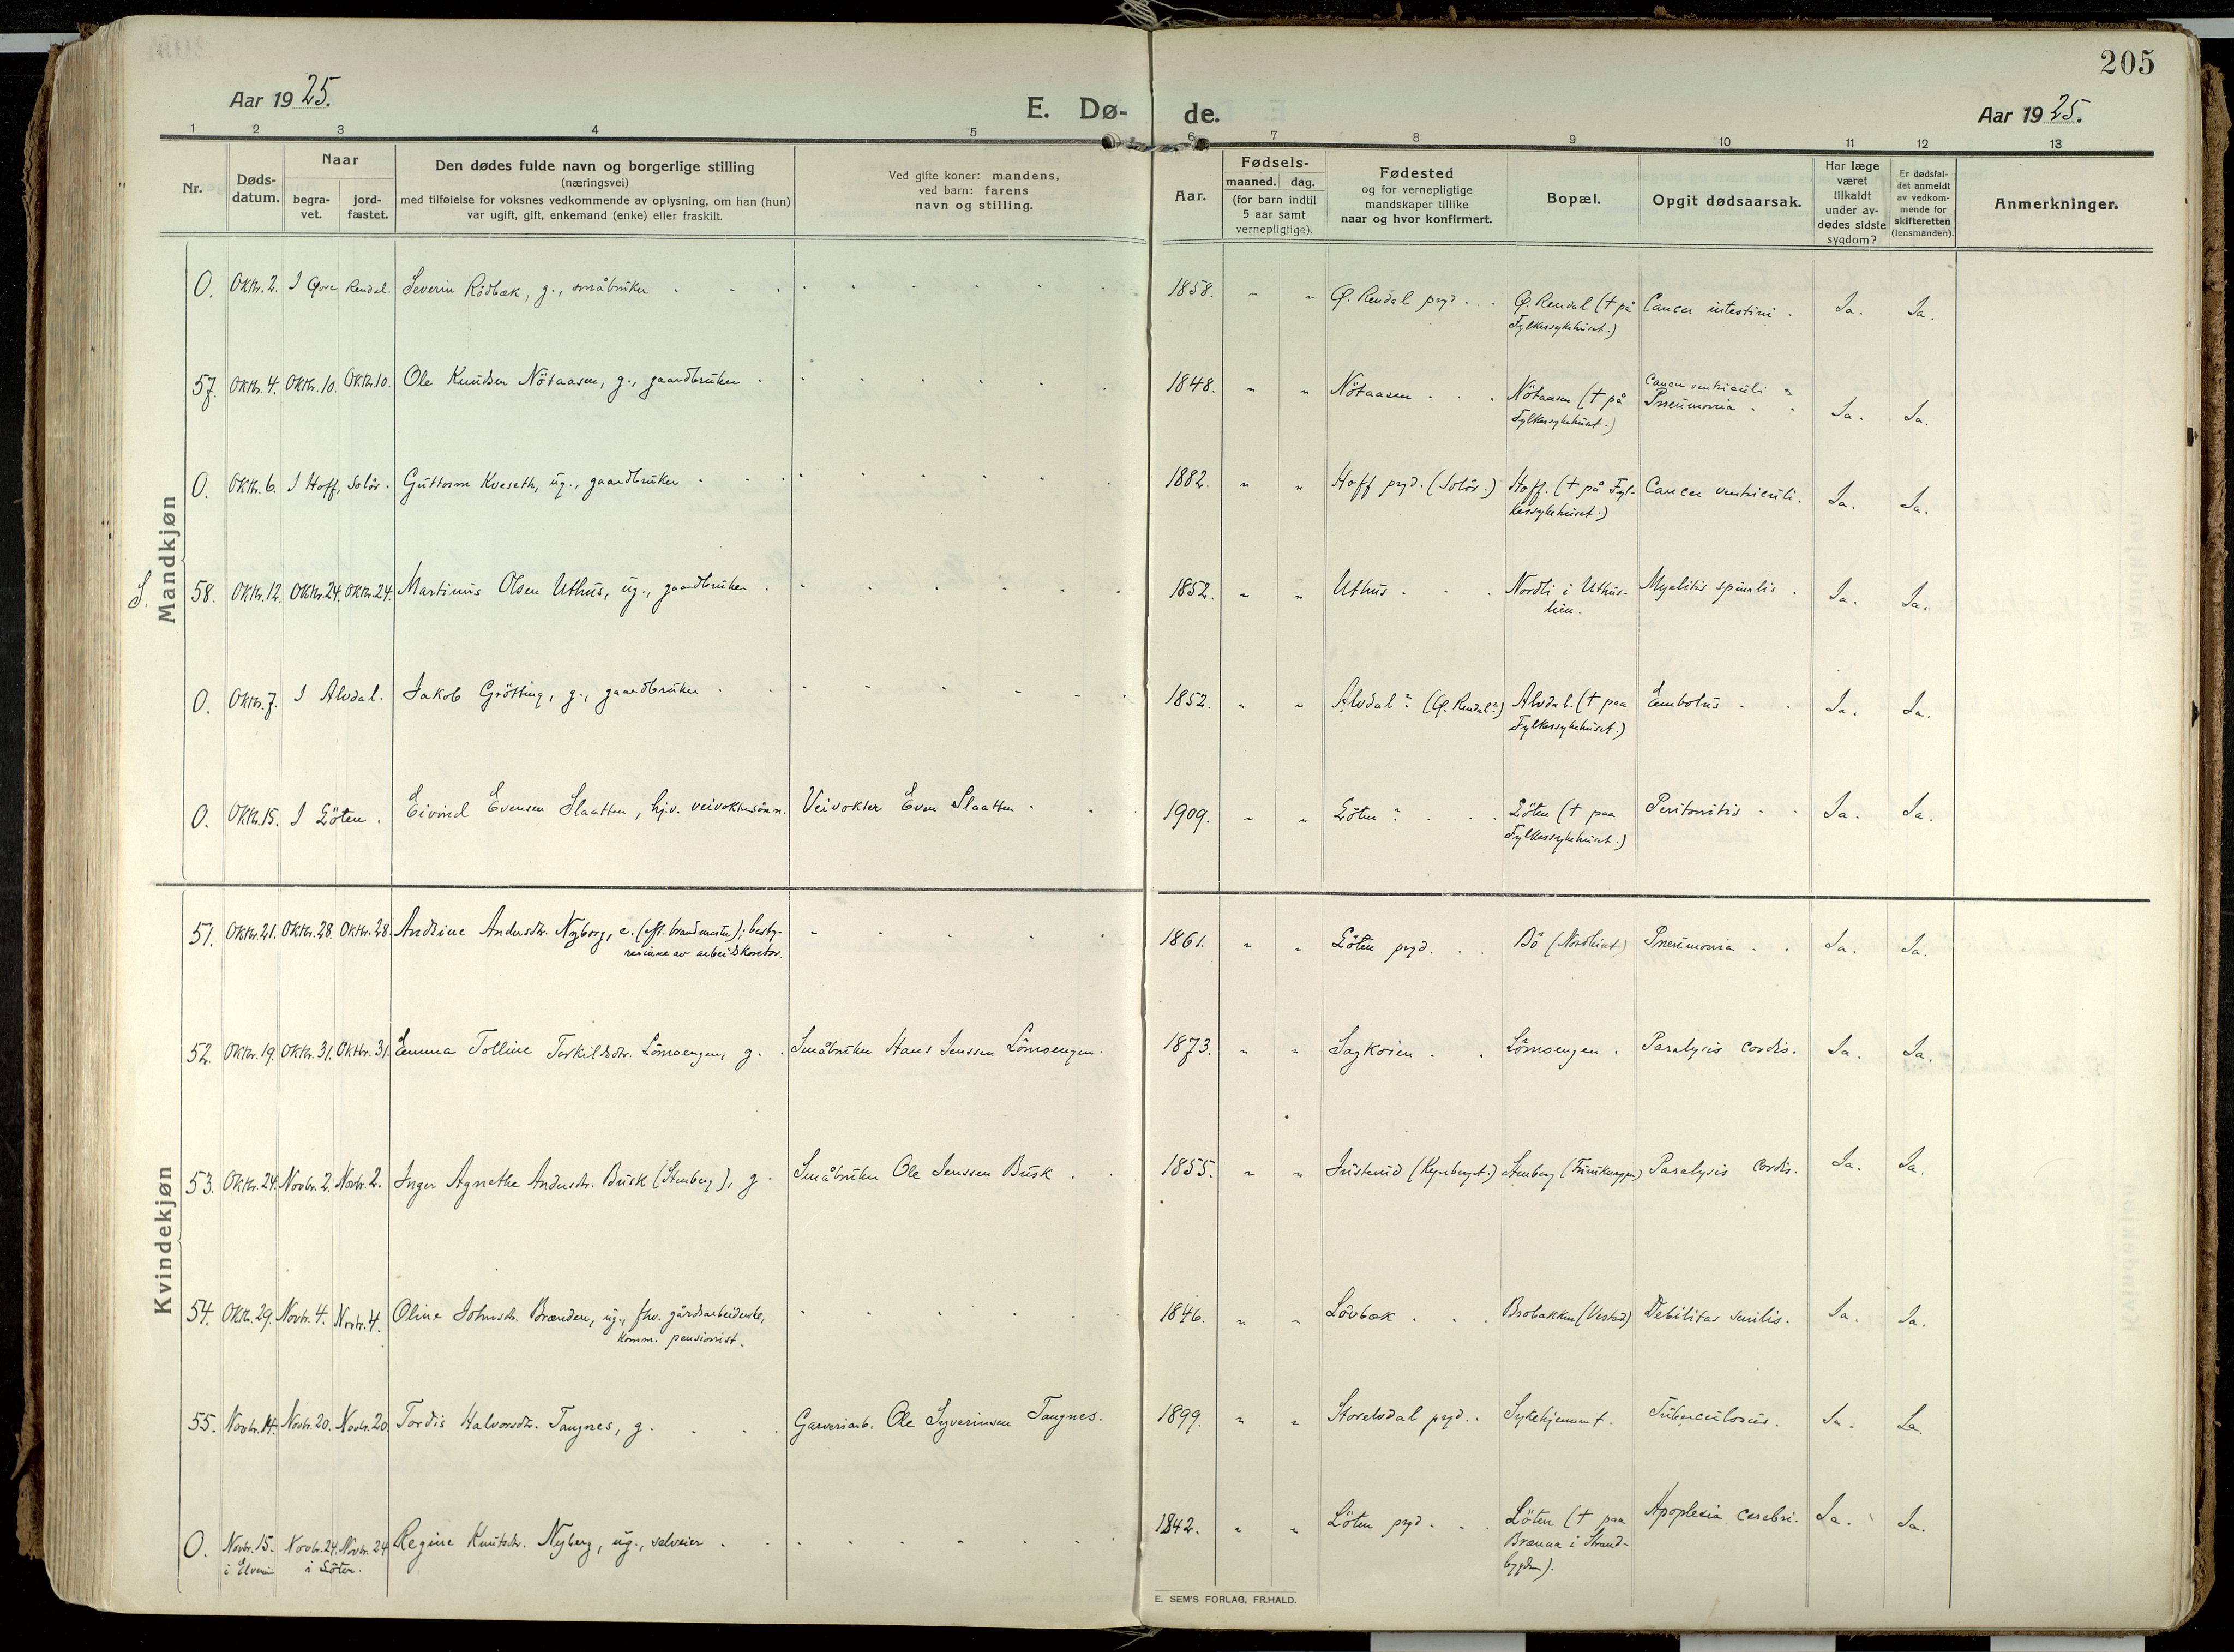 205
Aar 1925.
E. Dø-
de.
Aar 1925.
1 2 3 4 5 6 7 8 9 10 11 12 13
Nr.
Døds-
datum.
Naar
begra-
vet.
jord-
fæstet.
Den dødes fulde navn og borgerlige stilling
(næringsvei)
med tilføielse for voksnes vedkommende av oplysning, om han (hun)
var ugift, gift, enkemand (enke) eller fraskilt.
Ved gifte koner: mandens,
ved barn: farens
navn og stilling.
Aar.
Fødsels-
maaned. dag.
(for barn indtil
5 aar samt
vernepligtige).
Fødested
og for vernepligtige
mandskaper tillike
naar og hvor konfirmert.
Bopæl.
Opgit dødsaarsak.
Har læge
været
tilkaldt
under av-
dødes sidste
sygdom?
Er dødsfal-
det anmeldt
av vedkom-
mende for
skifteretten
(lensmanden).
Anmerkninger.
Mandkjøn
O. Oktr. 2. I Øvre Rendal. Severin Rödbæk, g., småbruker 1858. " " Ø. Rendal pgd. Ø. Rendal († på Cancer intestini. Ja. Ja.
Fylkessykehuset.)
57. Oktr. 4. Oktr. 10. Oktr. 10. Ole Knudsen Nötaasen, g., gaardbruker 1848. " " Nötaasen Nötaasen († på Cancer ventriculi
Fylkessykehuset.) Pneumonia Ja. Ja.
O. Oktr. 6. I Hoff, Solör. Guttorm Kveseth, ug., gaardbruker 1882. " " Hoff pgd. (Solör.) Hoff. († på Fyl- Cancer ventriculi. Ja. Ja.
kessykehuset.)
S.
58. Oktr. 12. Oktr. 24. Oktr. 24. Martinus Olsen Uthus, ug., gaardbruker 1852. " " Uthus Nordli i Uthus- Myelitis spinalis. Ja. Ja.
lien.
O. Oktr. 7. I Alvdal. Jakob Grötting, g., gaardbruker 1852. " " Alvdal? (Ø. Rendal?) Alvdal. († paa Embolus Ja. Ja.
Fylkessykehuset.)
O. Oktr. 15. I Löten. Eivind Evensen Slaatten, hj.v. veivoktersönn. Veivokter Even Slaatten 1909. " " Löten? Löten († paa Peritonitis Ja. Ja.
Fylkessykehuset.)
Kvindekjøn
51. Oktr. 21. Oktr. 28. Oktr. 28 Andrine Andersdtr. Nyborg, e. (eft. brandmester); besty- 1861. " " Löten pgd. Bö (Nordhist.) Pneumonia Ja. Ja.
rerinne av arbeidskontor.
52. Oktr. 19. Oktr. 31. Oktbr. 31. Emma Tolline Torkildsdtr. Lömoengen, g. Småbruker Hans Jenssen Lömoengen. 1873. " " Sagkoien Lömoengen. Paralysis cordis. Ja. Ja.
53. Oktr. 24. Novbr. 2. Novbr. 2. Inger Agnethe Andersdtr. Busk (Stenberg), g. Småbruker Ole Jenssen Busk. 1855. " " Julsrud (Kynberget.) Stenberg Paralysis cordis. Ja. Ja.
54. Oktr. 29. Novbr. 4. Novbr. 4. Oline Johnsdr. Brænden, ug., fhv. gårdsarbeiderske, 1846. " " Lövbæk Brobakken (Vestad) Debilitas senilis. Ja. Ja.
komm. pensionist.
55. Novbr. 14. Novbr. 20. Novbr. 20. Tordis Halvorsdtr. Tangnes, g. Garveriarb. Ole Syverinsen Tangnes. 1899. " " Storelvdal pgd. Sykehjemmet. Tuberculosis. Ja. Ja.
O. Novbr. 15. Novbr. 24. Novbr. 24 Regine Knutsdr. Nyberg, ug., selveier 1842. " " Löten pgd. Löten († paa Apoplexia cerebri. Ja. Ja.
i Elverum i Löten. Brænna i Strand-
bygden).
E. SEM'S FORLAG, FR.HALD.